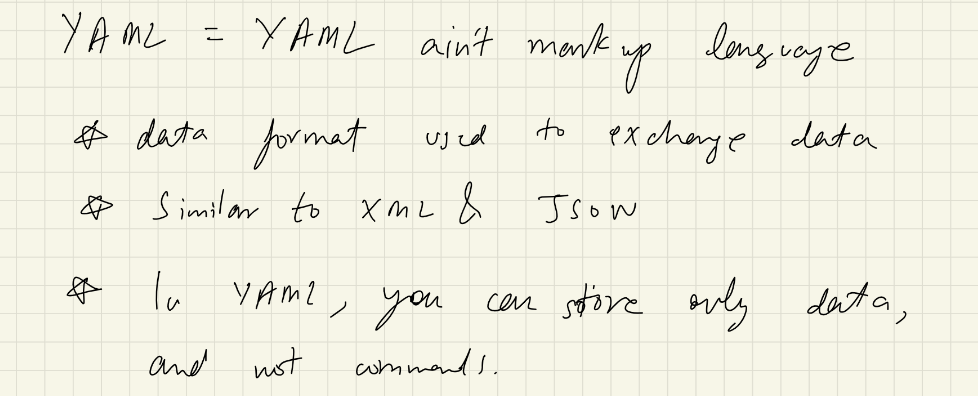 YAML = YAML ain't mark up language
☆ data format used to exchange data
☆ Similar to XML & JSON
☆ In YAML, you can store only data,
and not commands.